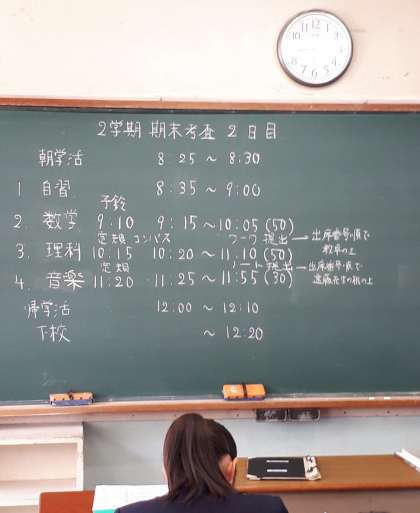 2学期 期末考査 2日目
朝学活 8:25 ～ 8:30
1 自習 8:35 ～ 9:00
予鈴
2. 数学 9:10 9:15～10:05(50)
定規 コンパス ワーク提出→出席番号順で
教卓の上
3. 理科 10:15 10:20 ～ 11:10(50)
定規 ノート提出→出席番号順で
先生の机の上
4. 音楽 11:20 11:25 ～ 11:55(30)
帰学活 12:00 ～ 12:10
下校 ～ 12:20
12 1 2 3 4 5 6 7 8 9 10 11